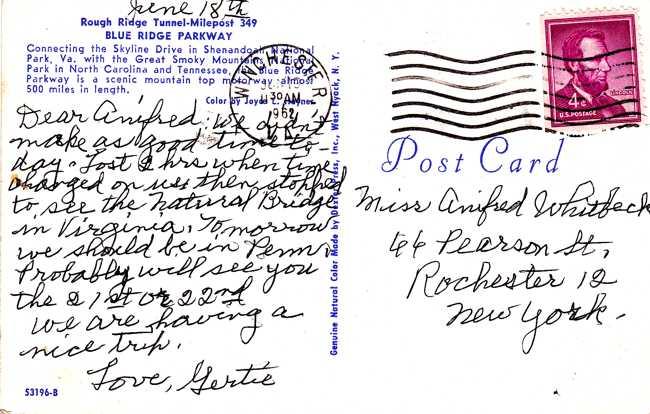 June 18th
Rough Ridge Tunnel-Milepost 349
BLUE RIDGE PARKWAY
Connecting the Skyline Drive in Shenandoah National
Park, Va. with the Great Smoky Mountains National
Park in North Carolina and Tennessee, the Blue Ridge
Parkway is a scenic mountain top motorway almost
500 miles in length.
Color by Joyce Haynes
Dear Anifred, we didn't
make as good time to-
day. Lost 2 hrs when time
changed on us & then stopped
to see the Natural Bridge
in Virginia. Tomorrow
we should be in Penn.
Probably will see you
the 21st or 22nd
We are having a
nice trip.
Love, Gertie
53196-B
Genuine Natural Color Made by Dexter Press, Inc., West Nyack, N. Y.
WINCHESTER
30 AM
1962
VA.
LINCOLN
4¢
U.S. POSTAGE
Post Card
Miss Anifred Whitbeck
44 Pearson St.
Rochester 12
New York.